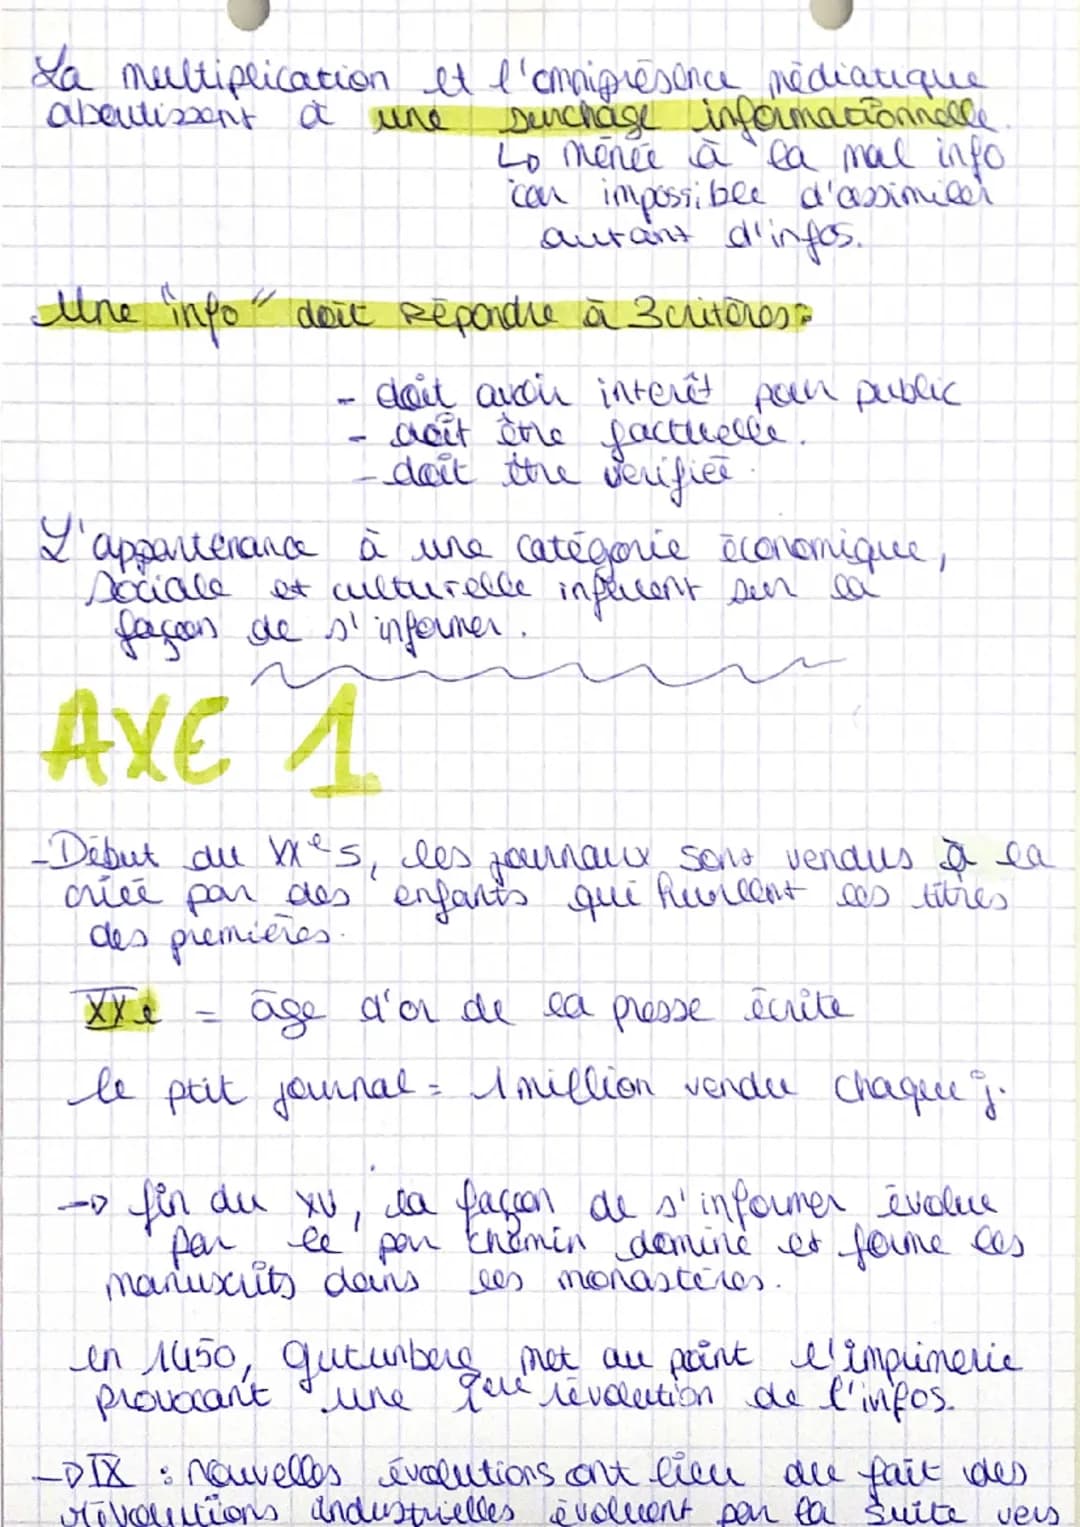 La multiplication et l'omniprésence médiatique
aboutissent à une surchage informationnelle.
↳ menée à la mal info
car impossible d'assimiler
autant d'infos.
Une "info" doit répondre à 3 critères :
- doit avoir interêt pour public
- doit être factuelle.
- doit être verifiée.
L'appartenance à une catégorie économique,
sociale et culturelle influent sur la
façon de s'informer.
AXE 1
- Début du XXe s, les journaux sont vendus à la
criée par des enfants qui hurlent les titres
des premières.
XXe = âge d'or de la presse écrite
le ptit journal = 1 million vendu chaque j.
→ fin du XV, la façon de s'informer évolue
par le par chemin dominé et forme les
manuscrits dans les monastères.
en 1450, gutunberg met au point l'imprimerie
provocant une 1ere révolution de l'infos.
→ IX : nouvelles évolutions ont lieu du fait des
révolutions industrielles évoluent par la suite vers